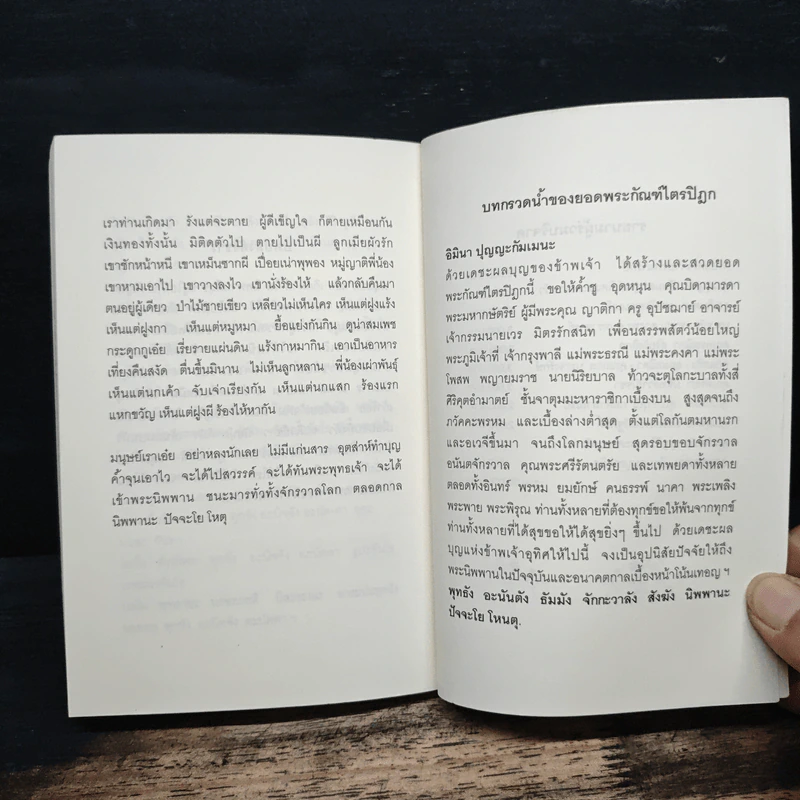 เราท่านเกิดมา รังแต่จะตาย ผู้ดีเข็ญใจ ก็ตายเหมือนกัน
เงินทองทั้งนั้น มิติดตัวไป ตายไปเป็นผี ลูกเมียผัวรัก
เขาชักหน้าหนี เขาเหม็นซากผี เปื่อยเน่าพุพอง หมู่ญาติพี่น้อง
เขาหามเอาไป เขาวางลงไว้ เขานั่งร้องไห้ แล้วกลับคืนมา
ตนอยู่ผู้เดียว ป่าไม้ชายเขียว เหลียวไม่เห็นใคร เห็นแต่ฝูงแร้ง
เห็นแต่ฝูงกา เห็นแต่หมูหมา ยื้อแย่งกันกิน ดูน่าสมเพช
กระดูกกูเอ๋ย เรี่ยรายแผ่นดิน แร้งกาหมากิน เอาเป็นอาหาร
เที่ยงคืนสงัด ตื่นขึ้นมินาน ไม่เห็นลูกหลาน พี่น้องเผ่าพันธุ์
เห็นแต่นกเค้า จับเจ่าเรียงกัน เห็นแต่นกแสก ร้องแรก
แหกขวัญ เห็นแต่ฝูงผี ร้องไห้หากัน
มนุษย์เราเอ๋ย อย่าหลงนักเลย ไม่มีแก่นสาร อุตส่าห์ทำบุญ
ค้ำจุนเอาไว จะได้ไปสวรรค์ จะได้ทันพระพุทธเจ้า จะได้
เข้าพระนิพพาน ชนะมารทั่วทั้งจักรวาลโลก ตลอดกาล
นิพพานะ ปัจจะโย โหตุ
บทกรวดน้ำของยอดพระกัณฑ์ไตรปิฎก
อิมินา ปุญญะกัมเมนะ
ด้วยเดชะผลบุญของข้าพเจ้า ได้สร้างและสวดยอด
พระกัณฑ์ไตรปิฎกนี้ ขอให้ค้ำชู อุดหนุน คุณบิดามารดา
พระมหากษัตริย์ ผู้มีพระคุณ ญาติกา ครู อุปัชฌาย์ อาจารย์
เจ้ากรรมนายเวร มิตรรักสนิท เพื่อนสรรพสัตว์น้อยใหญ่
พระภูมิเจ้าที่ เจ้ากรุงพาลี แม่พระธรณี แม่พระคงคา แม่พระ
โพสพ พญายมราช นายนิริยบาล ท้าวจะตุโลกะบาลทั้งสี่
ศิริคุตอำมาตย์ ชั้นจาตุมมะหาราชิกาเบื้องบน สูงสุดจนถึง
ภวัคคะพรหม และเบื้องล่างต่ำสุด ตั้งแต่โลกันตมหานรก
และอเวจีขึ้นมา จนถึงโลกมนุษย์ สุดรอบขอบจักรวาล
อนันตจักรวาล คุณพระศรีรัตนตรัย และเทพยดาทั้งหลาย
ตลอดทั้งอินทร์ พรหม ยมยักษ์ คนธรรพ์ นาคา พระเพลิง
พระพาย พระพิรุณ ท่านทั้งหลายที่ต้องทุกข์ขอให้พ้นจากทุกข์
ท่านทั้งหลายที่ได้สุขขอให้ได้สุขยิ่งๆ ขึ้นไป ด้วยเดชะผล
บุญแห่งข้าพเจ้าอุทิศให้ไปนี้ จงเป็นอุปนิสัยปัจจัยให้ถึง
พระนิพพานในปัจจุบันและอนาคตกาลเบื้องหน้าโน้นเทอญ ฯ
พุทธัง อะนันตัง ธัมมัง จักกะวาลัง สังฆัง นิพพานะ
ปัจจะโย โหนตุ.